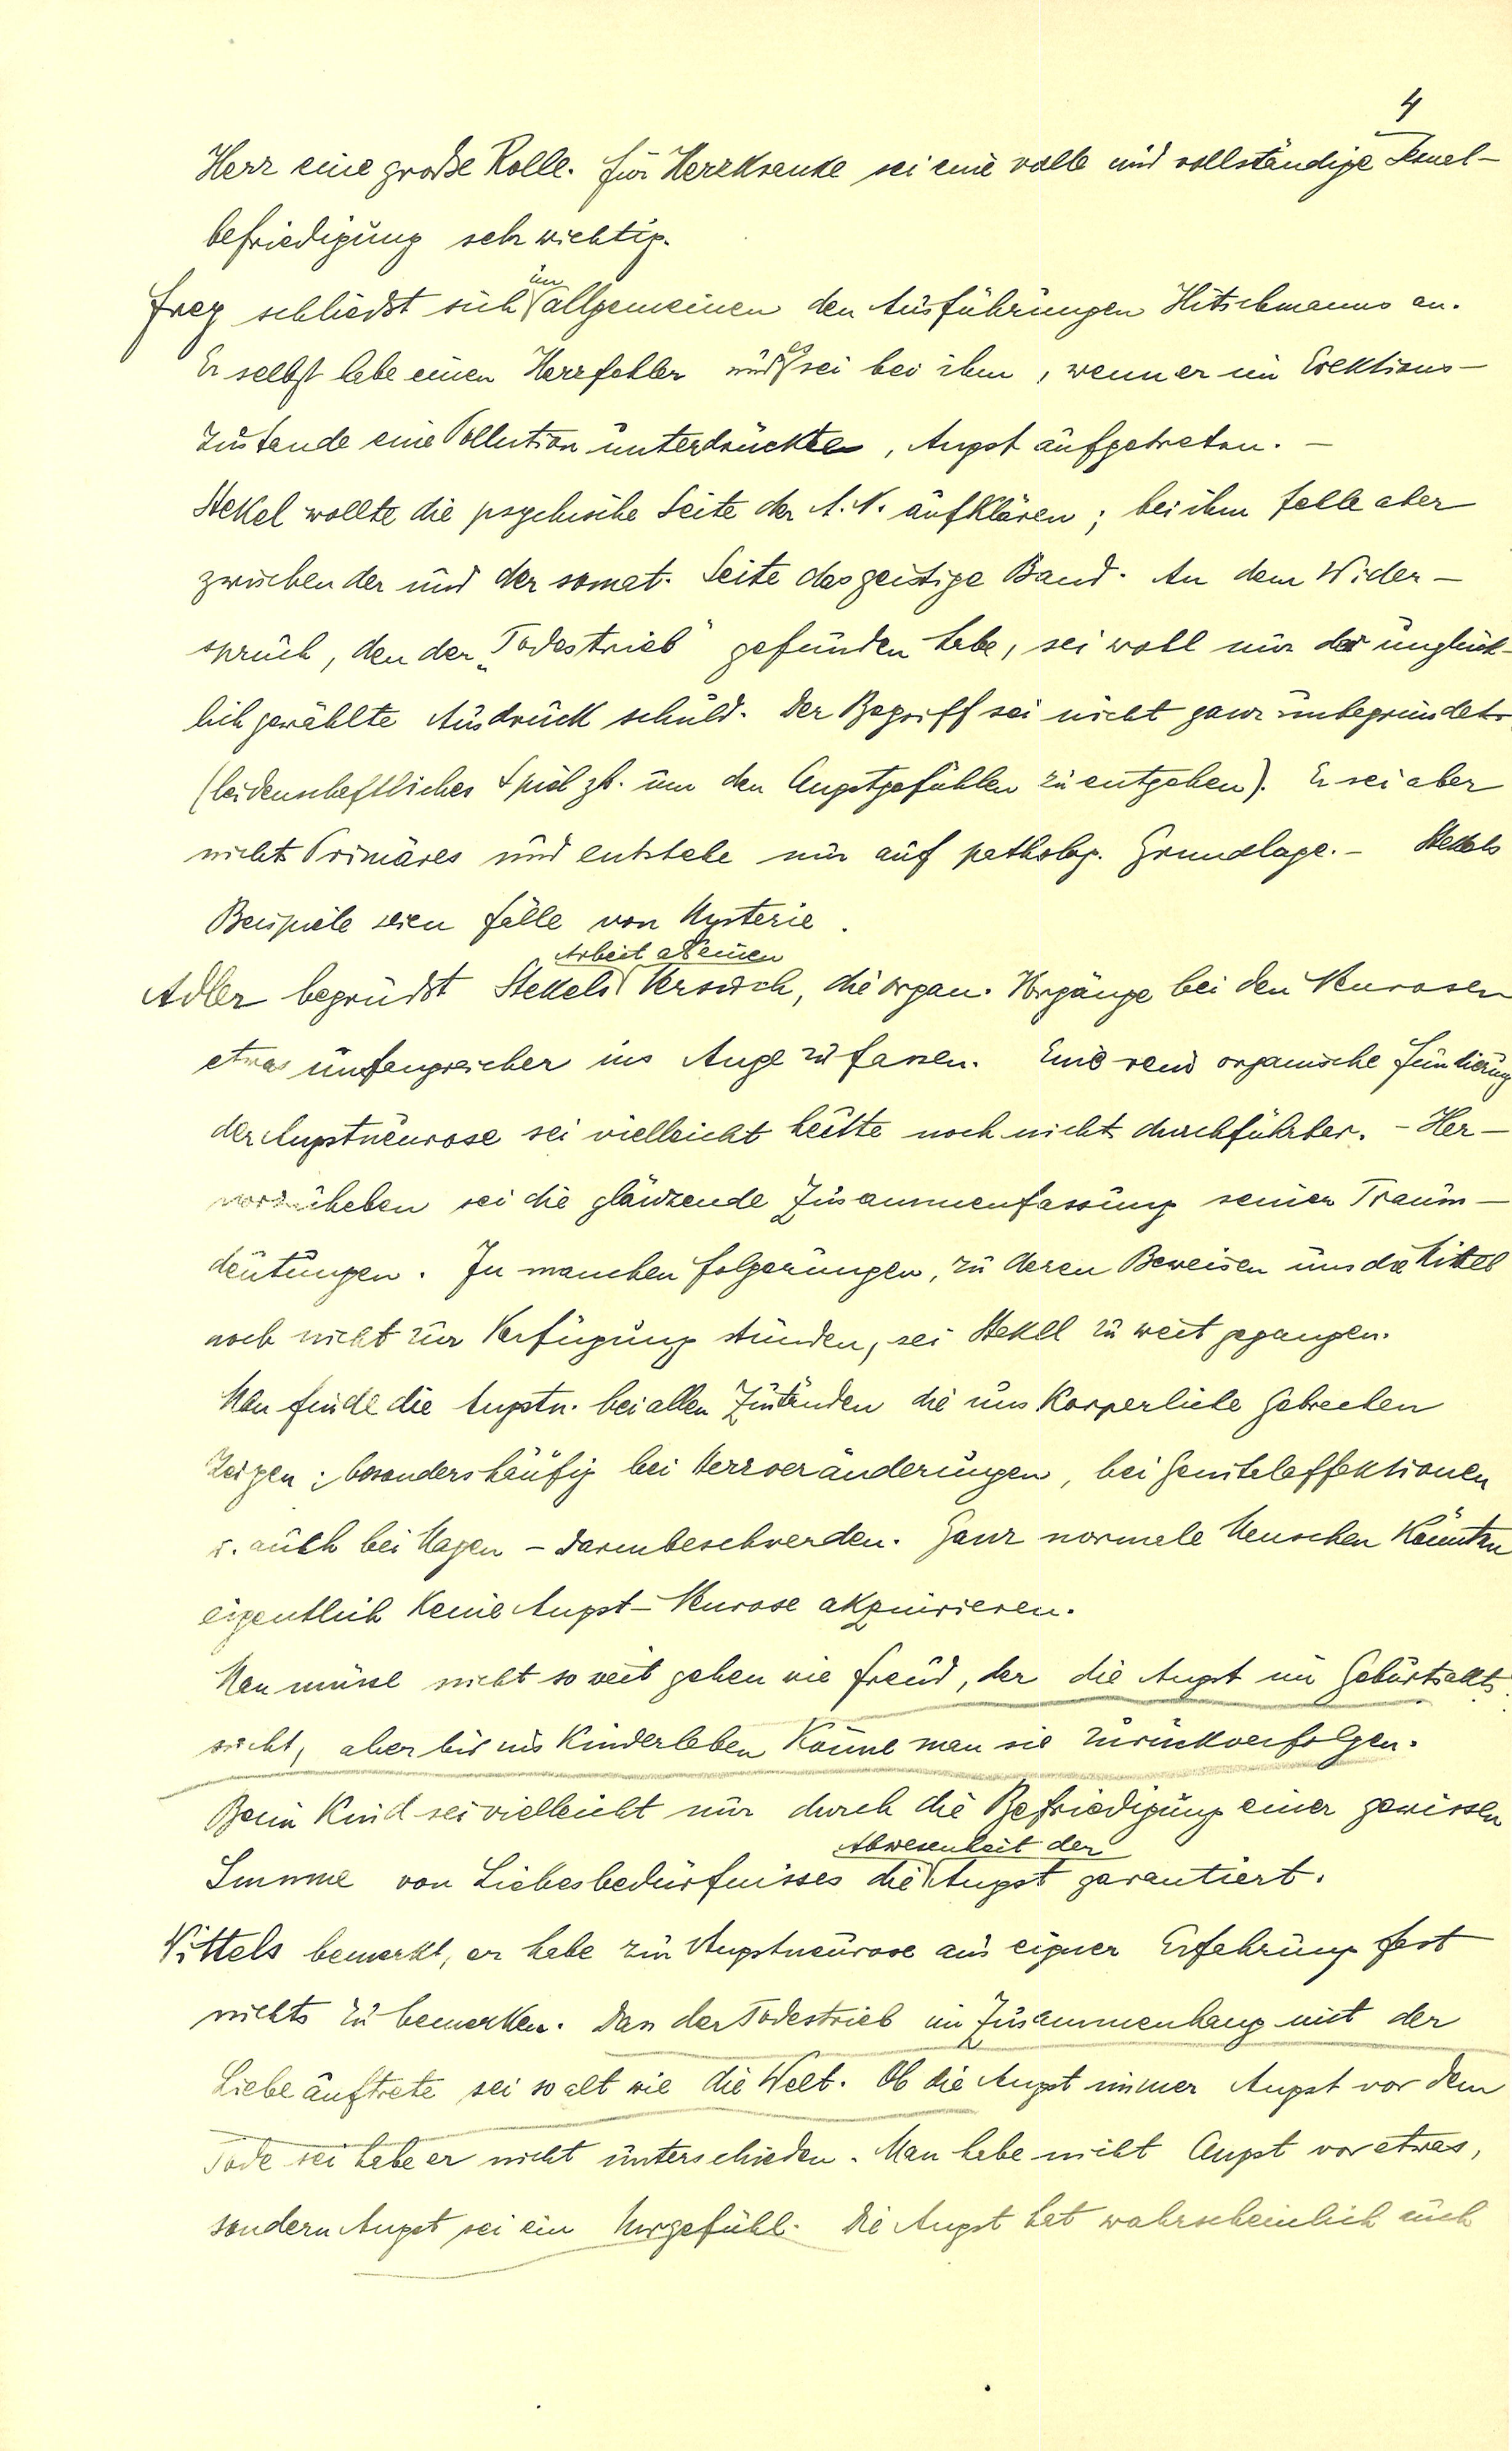 4
Herz eine große Rolle. Für Herzkranke sei eine volle und vollständige Sexual-
befriedigung sehr wichtig.
Frey schließt sich im allgemeinen den Ausführungen Hitschmanns an.
Er selbst habe einen Herzfehler und es sei bei ihm, wenn er im Erektions-
zustande eine Pollution unterdrückte, Angst aufgetreten. –
Stekel wollte die psychische Seite der A. N. aufklären; bei ihm fehle aber
zwischen der und der somat. Seite das geistige Band. An dem Wider-
spruch, den der „Todestrieb" gefunden habe, sei wohl nur der unglück-
lich gewählte Ausdruck schuld. Der Begriff sei nicht ganz unbegründet
(leidenschaftliches Spiel zb. um den Angstgefühlen zu entgehen). Er sei aber
nichts Primäres und entstehe nur auf patholog. Grundlage. – Stekels
Beispiele seien Fälle von Hysterie.
Arbeit als einen
Adler begrüßt Stekels Versuch, die organ. Vorgänge bei den Neurosen
etwas umfangreicher ins Auge zu fassen. Eine rein organische Fundierung
der Angstneurose sei vielleicht heute noch nicht durchführbar. – Her-
vorzuheben sei die glänzende Zusammenfassung seiner Traum-
deutungen. In manchen Folgerungen, zu deren Beweisen uns die Mittel
noch nicht zur Verfügung stünden, sei Stekel zu weit gegangen.
Man finde die Angstn. bei allen Zuständen die uns körperliche Gebrechen
zeigen; besonders häufig bei Herzveränderungen, bei Genitalaffektionen
u. auch bei Magen – Darmbeschwerden. Ganz normale Menschen könnten
eigentlich keine Angst-Neurose akquirieren.
Man müsse nicht so weit gehen wie Freud, der die Angst im Geburtsakte
sieht, aber bis ins Kinderleben könne man sie zurückverfolgen.
Beim Kind sei vielleicht nur durch die Befriedigung einer gewissen
Abwesenheit der
Summe von Liebesbedürfnisses die Angst garantiert.
Wittels bemerkt, er habe zur Angstneurose aus eigner Erfahrung fast
nichts zu bemerken. Dass der Todestrieb im Zusammenhang mit der
Liebe auftrete sei so alt wie die Welt. Ob die Angst immer Angst vor dem
Tode sei habe er nicht unterschieden. Man habe nicht Angst vor etwas,
sondern Angst sei ein Urgefühl. Die Angst hat wahrscheinlich auch